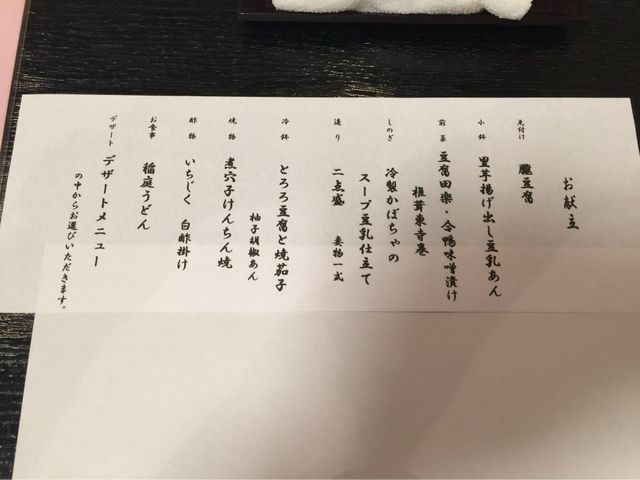 お献立
先付け
朧豆腐
小鉢
里芋揚げ出し豆乳あん
前菜
豆腐田楽・合鴨味噌漬け
椎茸東寺巻
しのぎ
冷製かぼちゃの
スープ豆乳仕立て
造り
二点盛 妻物一式
冷鉢
とろろ豆腐と焼茄子
柚子胡椒あん
焼物
煮穴子けんちん焼
酢物
いちじく 白酢掛け
お食事
稲庭うどん
デザート
デザートメニュー
の中からお選びいただきます。